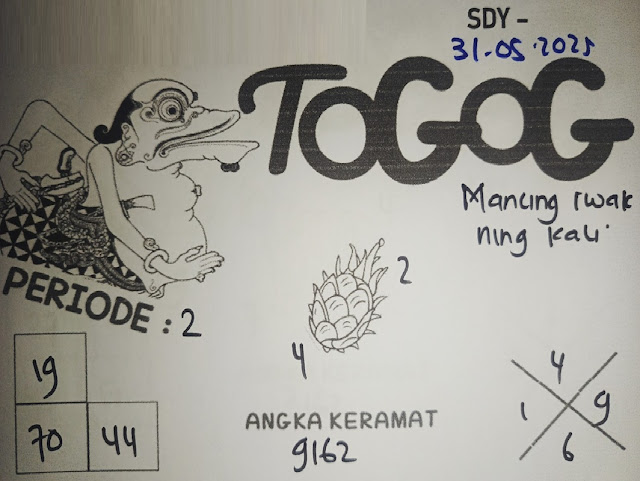 SDY -
31-05-2025
TOGOG
Mancing iwak
ning kali
PERIODE : 2
2
4
19
70 44
ANGKA KERAMAT
9162
4
1 9
6